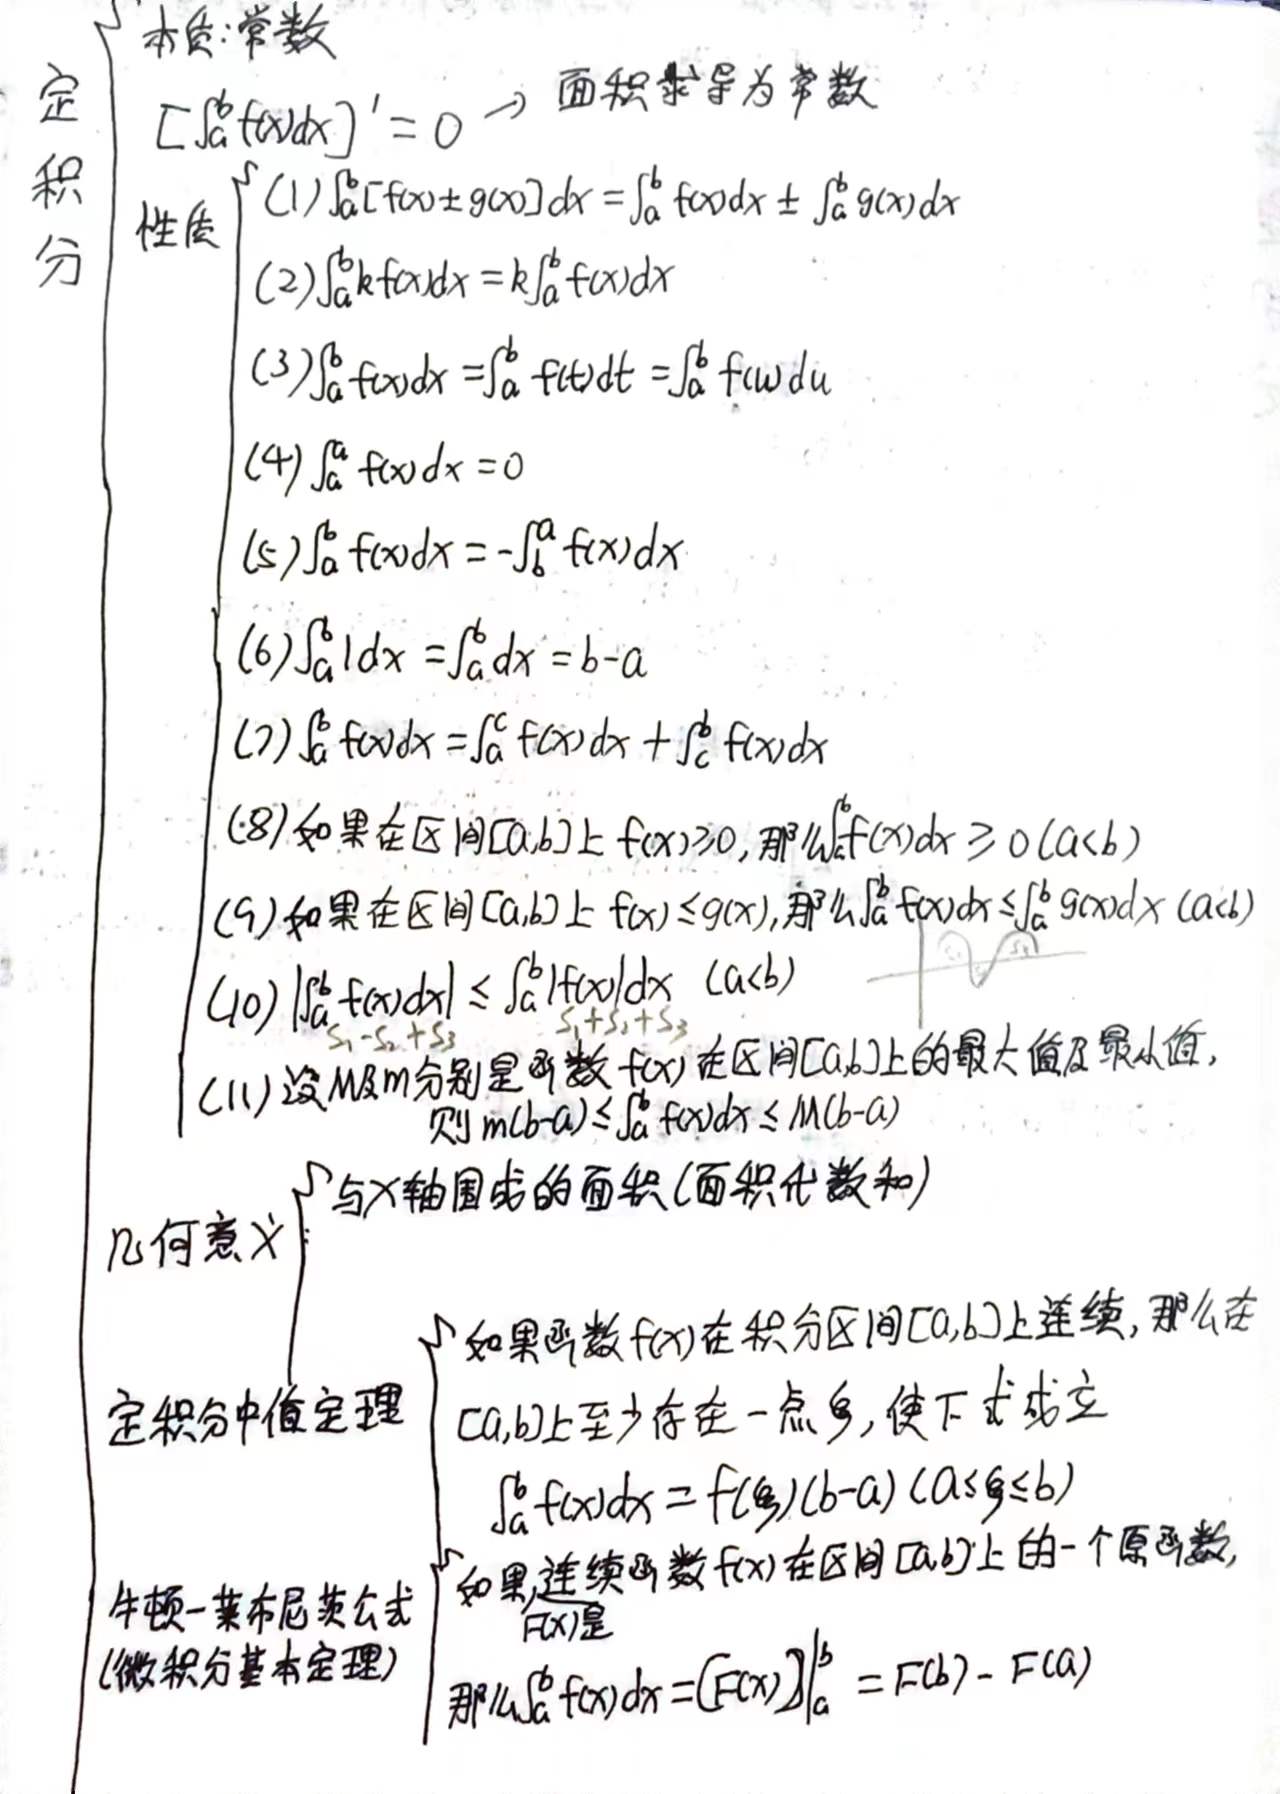 定积分
本质:常数
[∫ₐᵇf(x)dx]'=0 → 面积求导为常数
性质
(1)∫ₐᵇ[f(x)±g(x)]dx=∫ₐᵇf(x)dx±∫ₐᵇg(x)dx
(2)∫ₐᵇkf(x)dx=k∫ₐᵇf(x)dx
(3)∫ₐᵇf(x)dx=∫ₐᵇf(t)dt=∫ₐᵇf(u)du
(4)∫ₐᵃf(x)dx=0
(5)∫ₐᵇf(x)dx=-∫_b^a f(x)dx
(6)∫ₐᵇ1dx=∫ₐᵇdx=b-a
(7)∫ₐᵇf(x)dx=∫ₐᶜf(x)dx+∫_c^b f(x)dx
(8)如果在区间[a,b]上f(x)≥0,那么∫ₐᵇf(x)dx≥0(a<b)
(9)如果在区间[a,b]上f(x)≤g(x),那么∫ₐᵇf(x)dx≤∫ₐᵇg(x)dx(a<b)
(10)|∫ₐᵇf(x)dx|≤∫ₐᵇ|f(x)|dx (a<b)
S₁-S₂+S₃ S₁+S₂+S₃
(11)设M及m分别是函数f(x)在区间[a,b]上的最大值及最小值,
则m(b-a)≤∫ₐᵇf(x)dx≤M(b-a)
几何意义
与X轴围成的面积(面积代数和)
定积分中值定理
如果函数f(x)在积分区间[a,b]上连续,那么在
[a,b]上至少存在一点ξ,使下式成立
∫ₐᵇf(x)dx=f(ξ)(b-a)(a≤ξ≤b)
牛顿-莱布尼茨公式
(微积分基本定理)
如果,连续函数f(x)在区间[a,b]上的一个原函数,
F(x)是
那么∫ₐᵇf(x)dx=[F(x)]|ₐᵇ=F(b)-F(a)